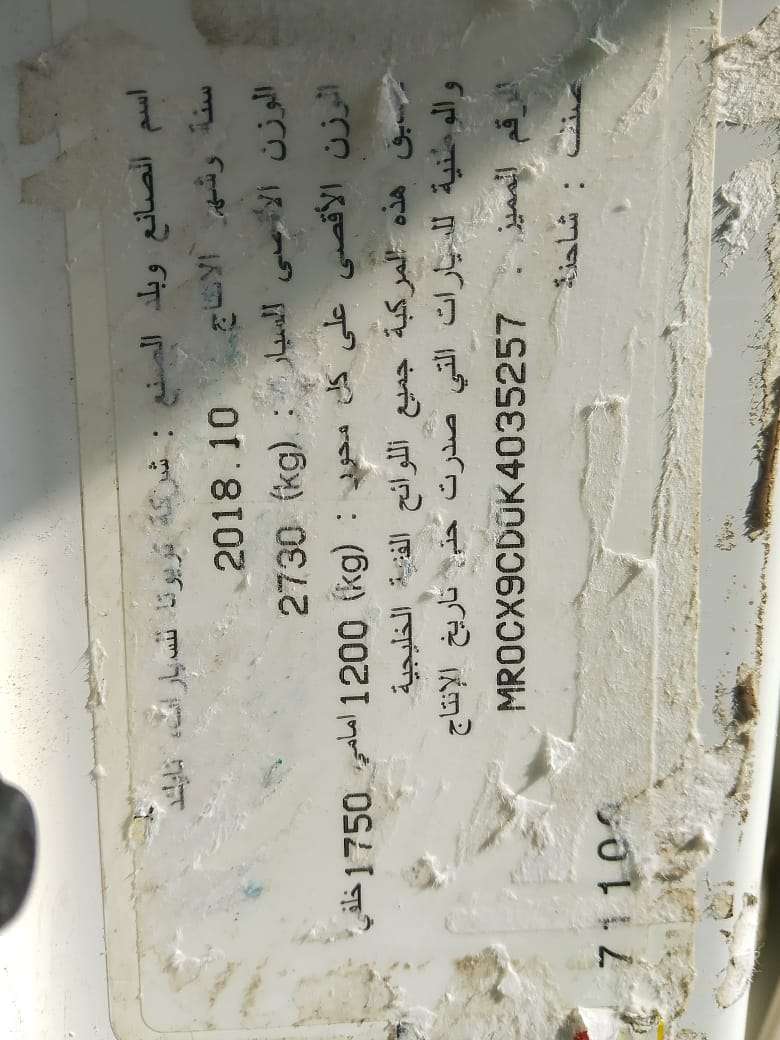 اسم الصانع وبلد الصنع : شركة تويوتا للسيارات، تايلاند
سنة وشهر الانتاج 2018.10
الوزن الأقصى للسيارة : (kg) 2730
الوزن الأقصى على كل محور : (kg) 1200 امامي 1750 خلفي
هذه المركبة جميع اللوائح الفنية الخليجية
والوطنية للسيارات التي صدرت حتى تاريخ الإنتاج
الرقم المميز : MR0CX9CD0K4035257
صنف : شاحنة